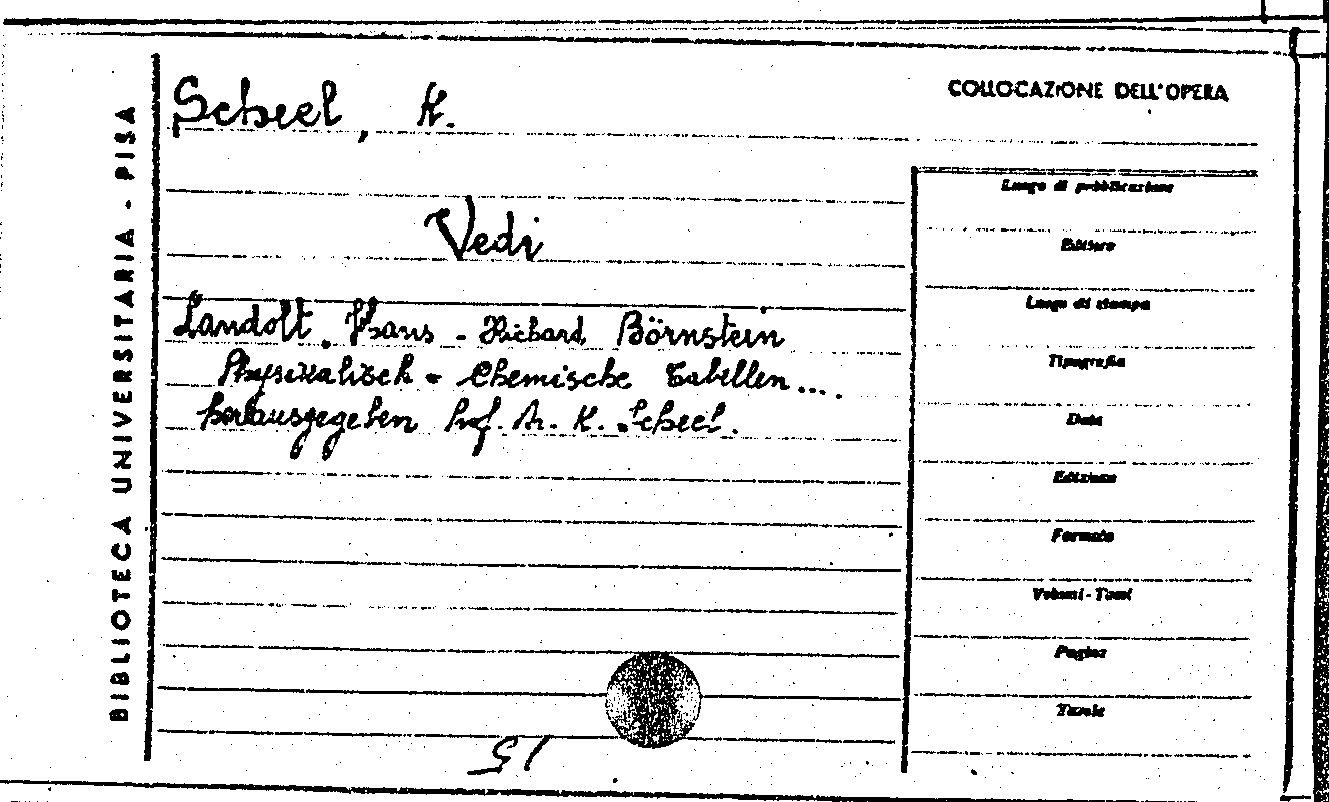 COLLOCAZIONE DELL'OPERA
Scheel, K.
Vedi
Landolt, Hans - Richard Börnstein
Physikalisch - Chemische Tabellen...
herausgegeben Prof. Dr. K. Scheel.
BIBLIOTECA UNIVERSITARIA - PISA
Luogo di pubblicazione
Editore
Luogo di stampa
Tipografia
Data
Edizione
Formato
Volumi - Tomi
Pagine
Tavole